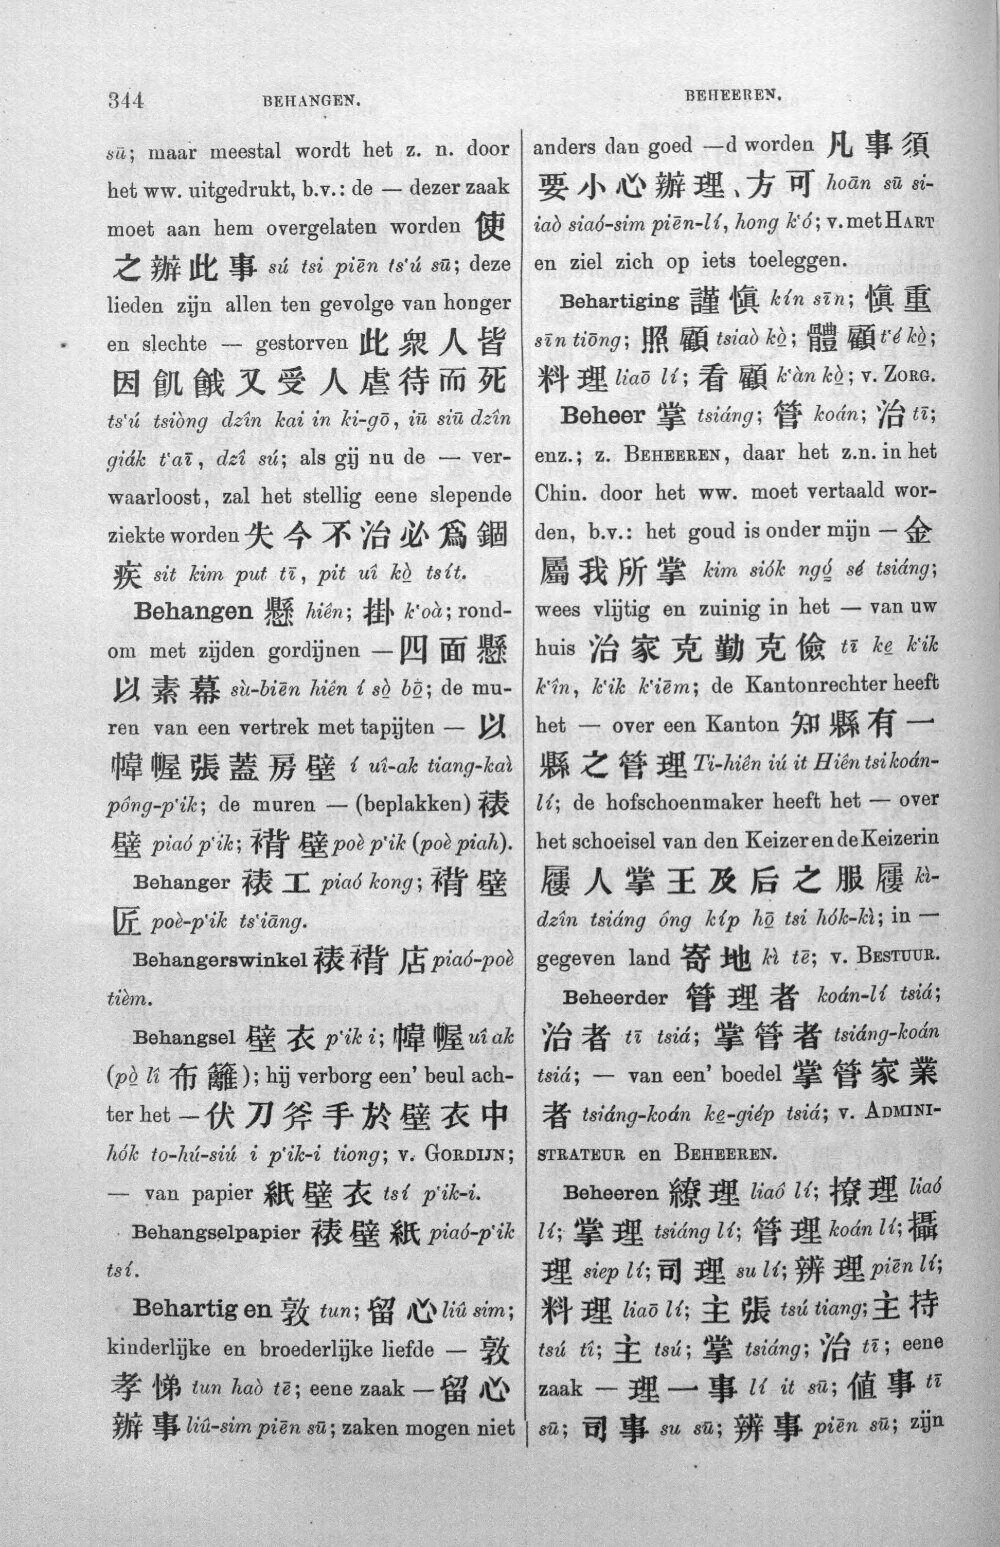 344 BEHANGEN. BEHEEREN.
sū; maar meestal wordt het z. n. door
het ww. uitgedrukt, b.v.: de — dezer zaak
moet aan hem overgelaten worden 使
之辦此事 sú tsi piēn ts‘ú sū; deze
lieden zijn allen ten gevolge van honger
en slechte — gestorven 此衆人皆
因飢餓又受人虐待而死
ts‘ú tsiòng dzîn kai in ki-gō, iū siū dzîn
giák t‘aī, dzî sú; als gij nu de — ver-
waarloost, zal het stellig eene slepende
ziekte worden 失今不治必爲錮
疾 sit kim put tī, pit uî kò̤ tsít.
Behangen 懸 hiên; 掛 k‘oà; rond-
om met zijden gordijnen — 四面懸
以素幕 sù-biēn hiên í sò̤ bō̤; de mu-
ren van een vertrek met tapijten — 以
幃幄張蓋房壁 í uî-ak tiang-kaì
pông-p‘ik; de muren — (beplakken) 裱
壁 piaó p‘ik; 褙壁 poè p‘ik (poè piah).
Behanger 裱工 piaó kong; 褙壁
匠 poè-p‘ik ts‘iāng.
Behangerswinkel 裱褙店 piaó-poè
tièm.
Behangsel 壁衣 p‘ik i; 幃幄 uî ak
(pò̤ lî 布籬); hij verborg een’ beul ach-
ter het — 伏刀斧手於壁衣中
hók to-hú-siú i p‘ik-i tiong; v. GORDIJN;
— van papier 紙壁衣 tsí p‘ik-i.
Behangselpapier 裱壁紙 piaó-p‘ik
tsí.
Behartigen 敦 tun; 留心 liû sim;
kinderlijke en broederlijke liefde — 敦
孝悌 tun haò tē; eene zaak — 留心
辦事 liû-sim piēn sū; zaken mogen niet
anders dan goed —d worden 凡事須
要小心辦理、方可 hoān sū si-
iaò siaó-sim piēn-lí, hong k‘ó; v. met HART
en ziel zich op iets toeleggen.
Behartiging 謹愼 kín sīn; 愼重
sīn tiōng; 照顧 tsiaò kò̤; 體顧 t‘é kò̤;
料理 liaō lí; 看顧 k‘àn kò̤; v. ZORG.
Beheer 掌 tsiáng; 管 koán; 治 tī;
enz.; z. BEHEEREN, daar het z.n. in het
Chin. door het ww. moet vertaald wor-
den, b.v.: het goud is onder mijn — 金
屬我所掌 kim siók ngó̤ sé tsiáng;
wees vlijtig en zuinig in het — van uw
huis 治家克勤克儉 tī ke̤ k‘ik
k‘în, k‘ik k‘iēm; de Kantonrechter heeft
het — over een Kanton 知縣有一
縣之管理 Ti-hiên iú it Hiên tsi koán-
lí; de hofschoenmaker heeft het — over
het schoeisel van den Keizer en de Keizerin
屨人掌王及后之服屨 kì-
dzîn tsiáng ông kíp hō̤ tsi hók-kì; in —
gegeven land 寄地 kì tē; v. BESTUUR.
Beheerder 管理者 koán-lí tsiá;
治者 tī tsiá; 掌管者 tsiáng-koán
tsiá; — van een’ boedel 掌管家業
者 tsiáng-koán ke̤-giép tsiá; v. ADMINI-
STRATEUR en BEHEEREN.
Beheeren 繚理 liaô lí; 撩理 liaó
lí; 掌理 tsiáng lí; 管理 koán lí; 攝
理 siep lí; 司理 su lí; 辨理 piēn lí;
料理 liaō lí; 主張 tsú tiang; 主持
tsú tî; 主 tsú; 掌 tsiáng; 治 tī; eene
zaak — 理一事 lí it sū; 値事 tī
sū; 司事 su sū; 辨事 piēn sū; zijn